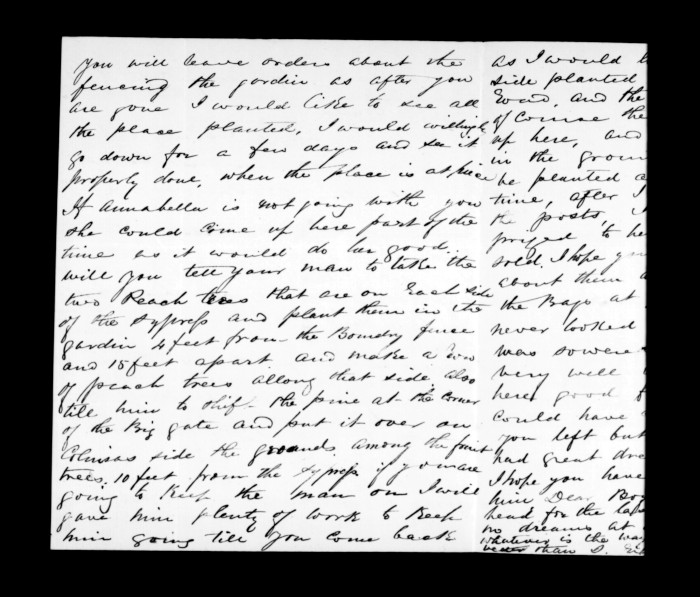 you will leave orders about the
fencing the gardin as after you
are gone I would like to see all
the place planted, I would willingly
go down for a few days and see it
properly done, when the place is at peice
If Annabella is not going with you
she could come up here part of the
time as it would do her good.
will you tell your man to take the
two Peach trees that are on Each side
of the sypress and plant them in the
gardin 4 feet from the Boundry fence
and 15 feet apart and make a Row
of peach trees allong that side, also
till him to shift the pine at the corner
of the Big gate and put it over on
side the grounds among the fruit
trees, 10 feet from the sypress if you are
going to Keep the man on I will
gave him plenty of work to Keep
him going till you come back
as I would
side planted
and the
of Course the
up here, and
in the groun
be planted
time, after I
the posts, I
prized to he
sold. I hope you
about them
the Bags at
never looked
was so
very well
here good
could have
you left but
had great
I hope you have
him Dear
head for the
no dreams at
whatever is the way
than D.